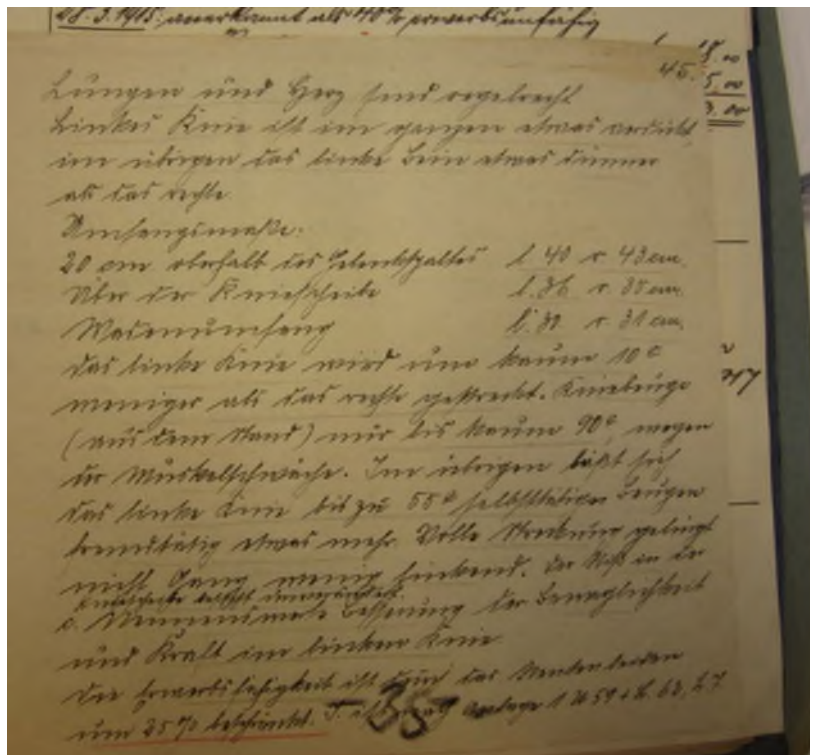 28.3.1915: anerkannt als 40% erwerbsunfähig
18.00
45.
5.00
3.00
Lungen und Herz sind regelrecht
Linkes Knie ist im ganzen etwas verdickt,
im übrigen das linke Bein etwas dünner
als das rechte.
Umfangsmaße:
20 cm oberhalb des Gelenkspaltes l. 40 r. 43 cm.
Über der Kniescheibe l. 36 r. 35 cm.
Wadenumfang l. 30 r. 31 cm.
das linke Knie wird um kaum 10°
weniger als das rechte gestreckt. Kniebeuge
(aus dem Stand) nur bis kaum 90°, wegen
der Muskelschwäche. Im übrigen läßt sich
das linke Knie bis zu 55° selbsttätig beugen
fremdtätig etwas mehr. Volle Streckung gelingt
nicht. Gang wenig hinkend. Der in der
Kniescheibe unverändert.
c. Nennenswerte Besserung der Beweglichkeit
und Kraft im linken Knie.
Die Erwerbsfähigkeit ist durch das Rentenleiden
um 35% beschränkt. Anlage 1 U 59 + L. 63, L 7
35